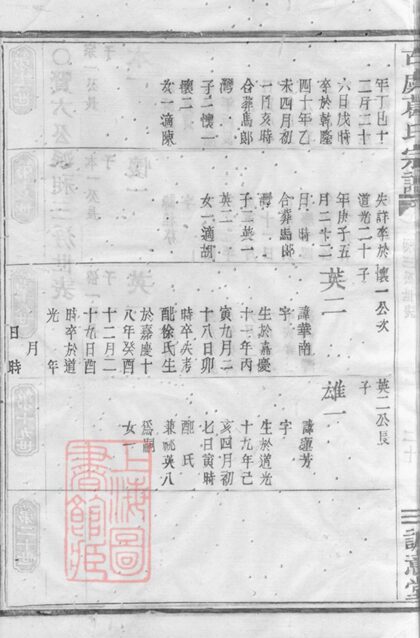 年丁巳十
二月二十
六日戌時
卒於乾隆
四十年乙
未四月初
一日亥時
合葬馬郎
灣
子二懷一
懷二
女一適陳
失詳卒於
道光二十
年庚子五
月二十二
日 時
合葬馬郎
灣
子二英一
英二
女一適胡
懷一公次
子
英二
諱華南
字
生於嘉慶
十一年丙
寅九月二
十八日卯
時卒失考
配徐氏生
於嘉慶十
八年癸酉
十二月二
十九日酉
時卒於道
光 年
月
日 時
英二公長
子
雄一
諱運芳
字
生於道光
十九年己
亥四月初
七日寅時
配 氏
兼祧英八
爲嗣
女一
上海圖
書館藏